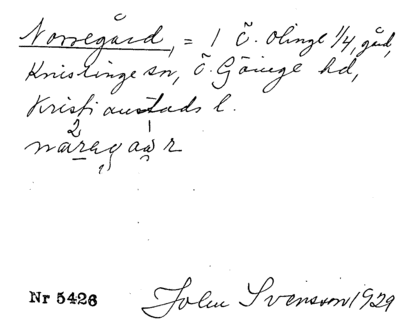 Norregård, = 1 Ö. Olinge 1/4, gård,
Knislinge sn, Ö. Göinge hd,
Kristianstads l.
Nr 5426 John Svensson 1929